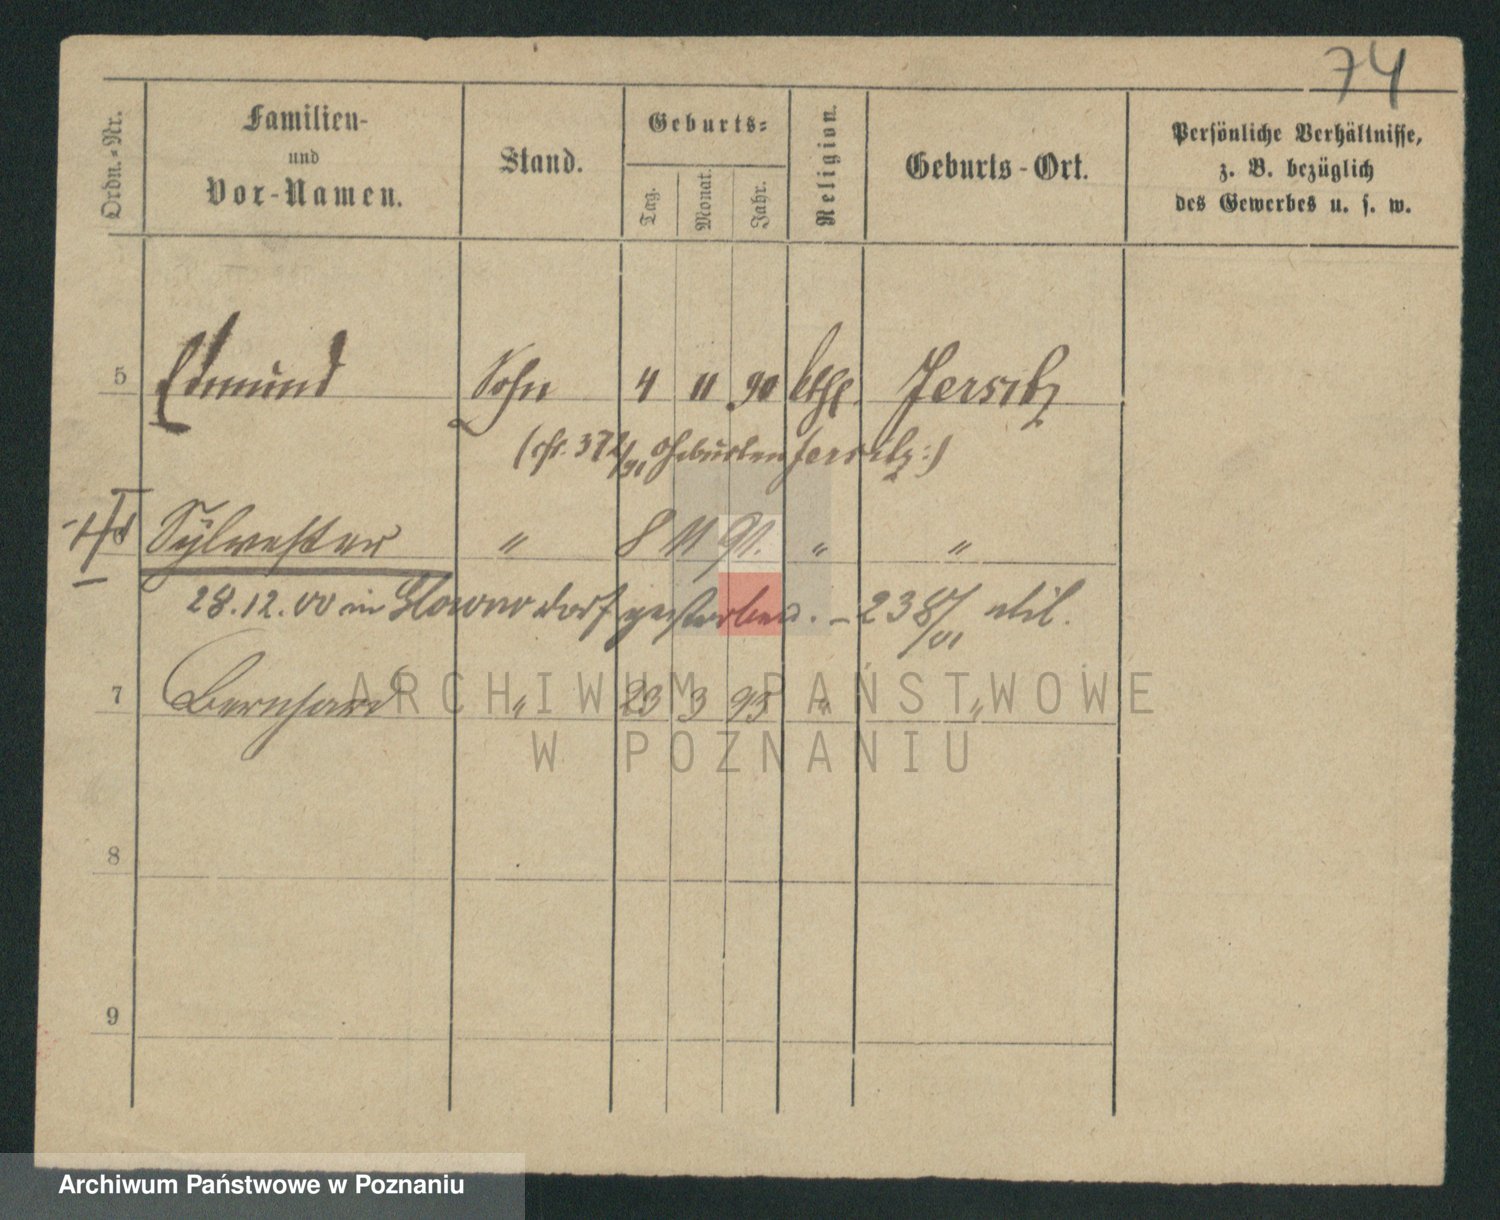 74
Ordn.-Nr. Familien- und Vor-Namen. Stand. Geburts- Tag. Monat. Jahr. Religion. Geburts-Ort. Persönliche Verhältnisse, z. B. bezüglich des Gewerbes u. s. w.
5 Edmund Sohn 4 11 90 kthl. Jersitz
372/91 Geburten Jersitz:)
6 Sylvester " 8 11 91. " "
28.12.00 in Glowno dorf gestorben. - 238/01
7 Bernhard " 23 3 95 " "
8
9
ARCHIWUM PAŃSTWOWE
W POZNANIU
Archiwum Państwowe w Poznaniu